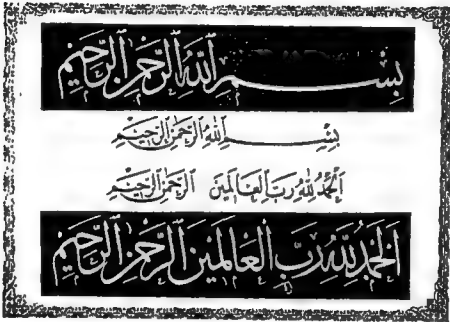 بِسْمِ اللهِ الرَّحْمٰنِ الرَّحِيْمِ
بِسْمِ اللهِ الرَّحْمٰنِ الرَّحِيْمِ
اَلْحَمْدُ لِلّٰهِ رَبِّ الْعَالَمِيْنَ الرَّحْمٰنِ الرَّحِيْمِ
اَلْحَمْدُ لِلّٰهِ رَبِّ الْعَالَمِيْنَ الرَّحْمٰنِ الرَّحِيْمِ